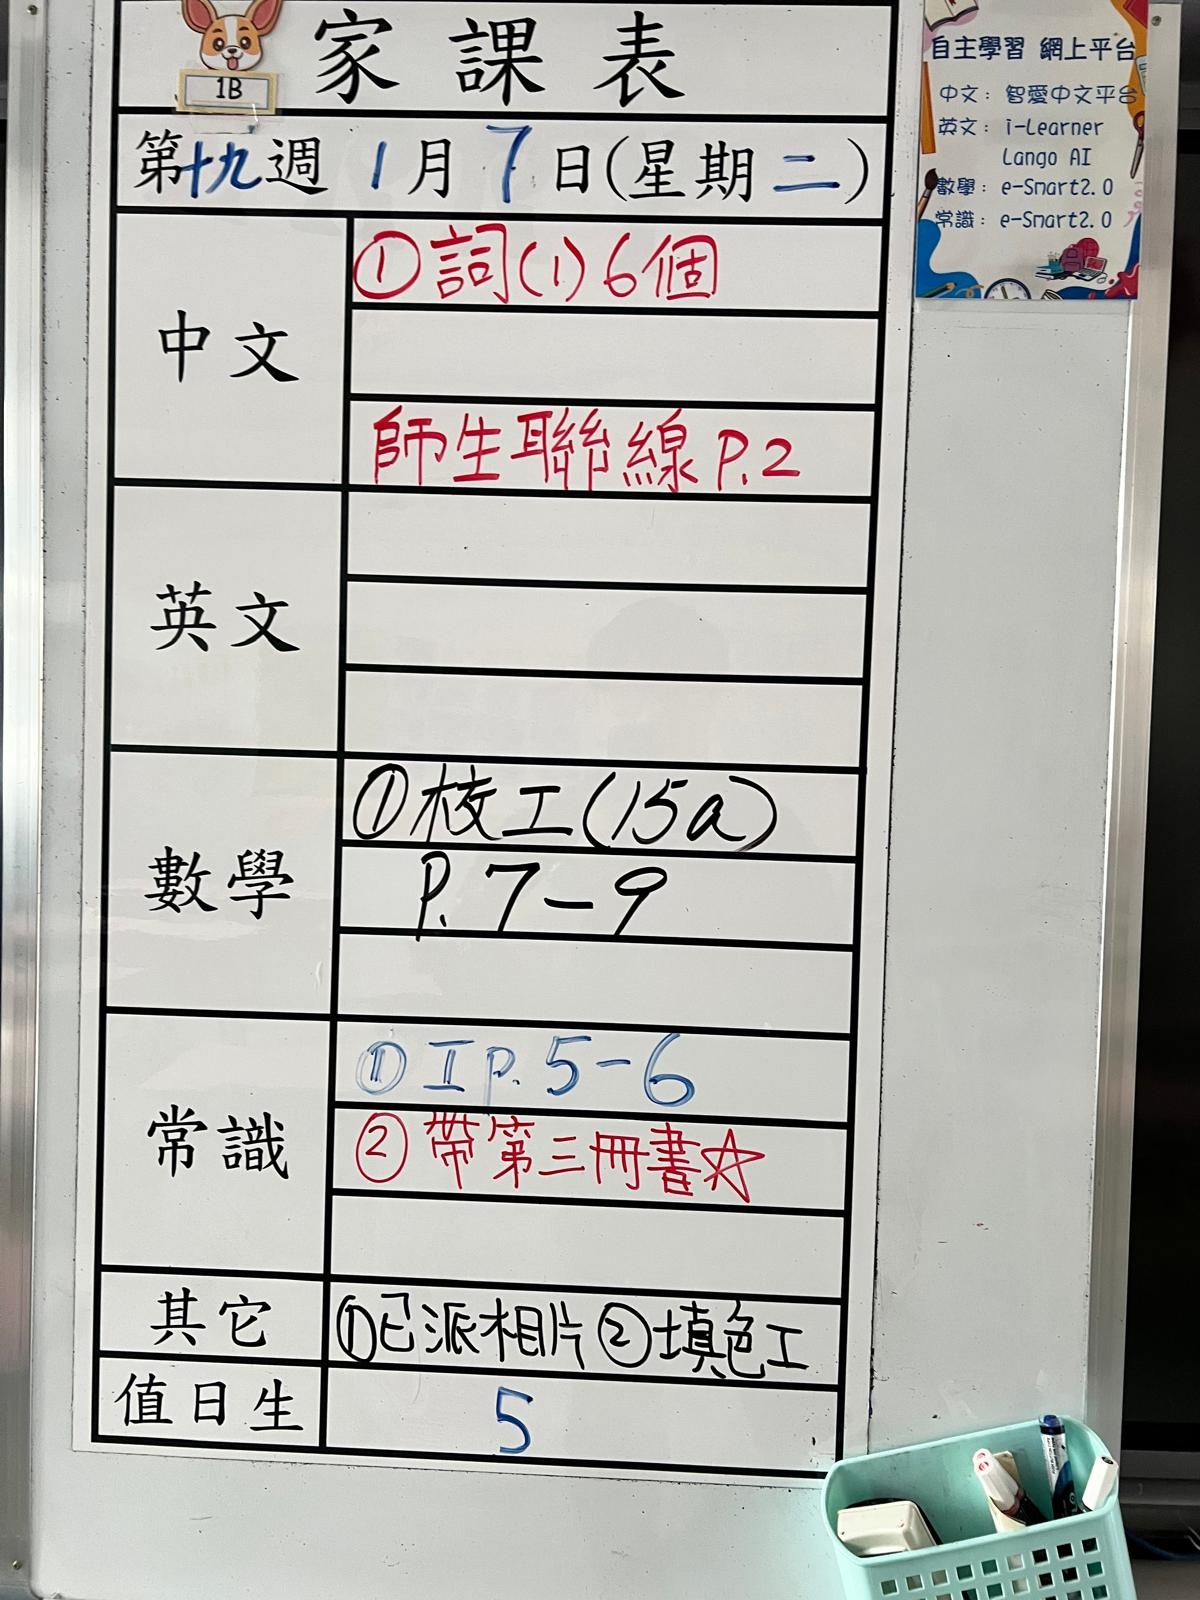 1B
家課表
第十九週 1月7日(星期二)
中文
①詞(1)6個
師生聯線P.2
英文
數學
①校工(15a)
P.7-9
常識
①工P.5-6
②帶第三冊書☆
其它
①已派相片②填色工
值日生
5
自主學習 網上平台
中文：智愛中文平台
英文：i-Learner
Lango AI
數學：e-Smart2.0
常識：e-Smart2.0